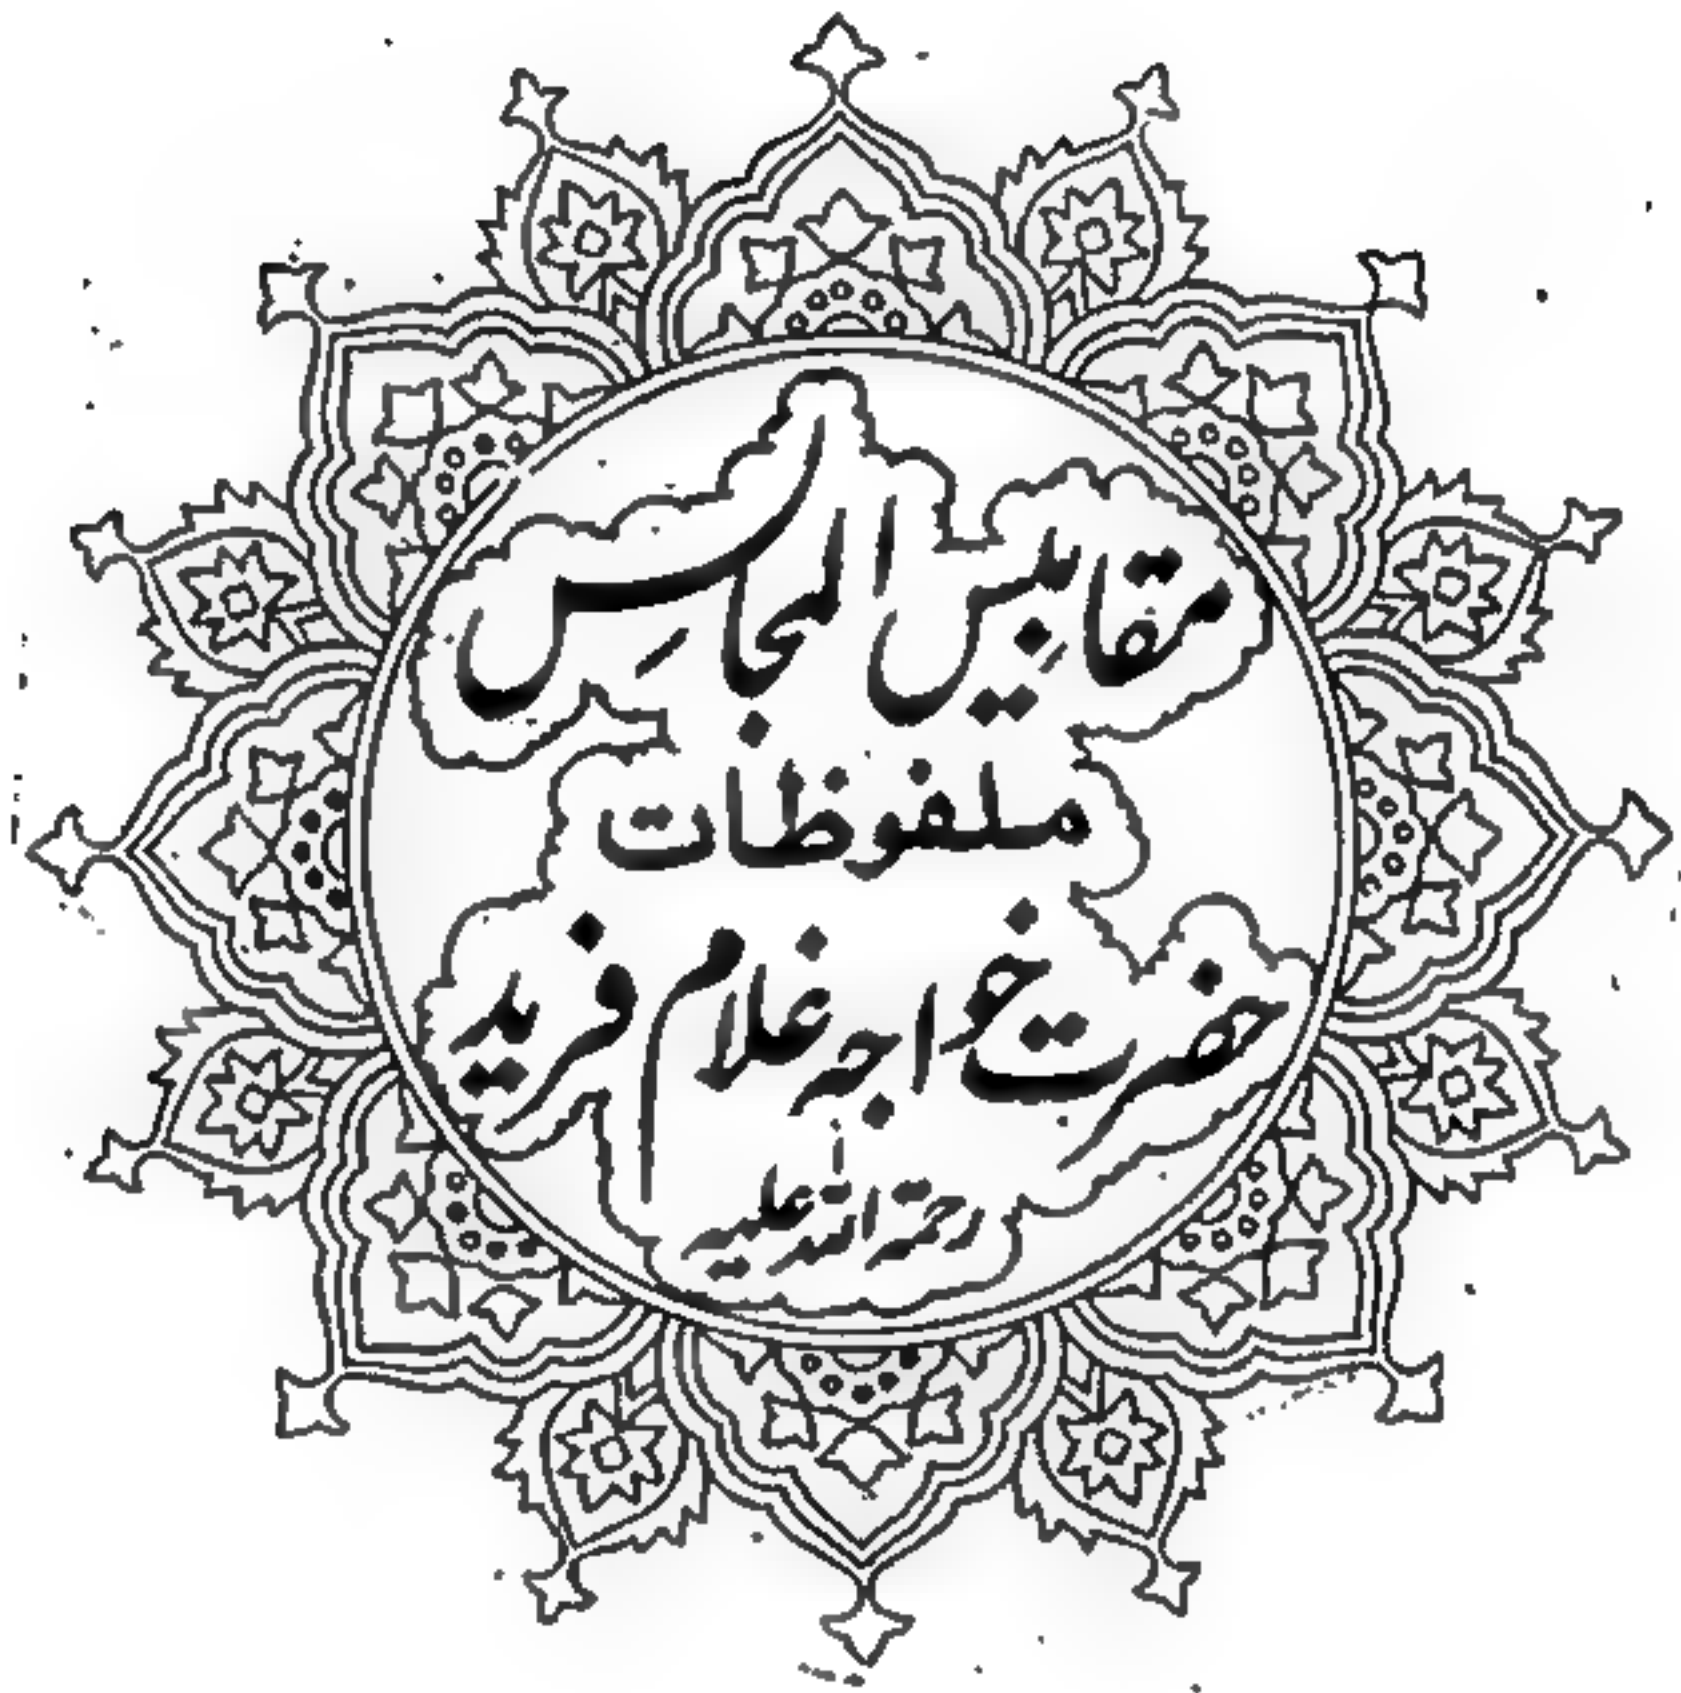 مقابیس المجالس
ملفوظات
حضرت خواجہ غلام فرید
رحمۃ اللہ علیہ